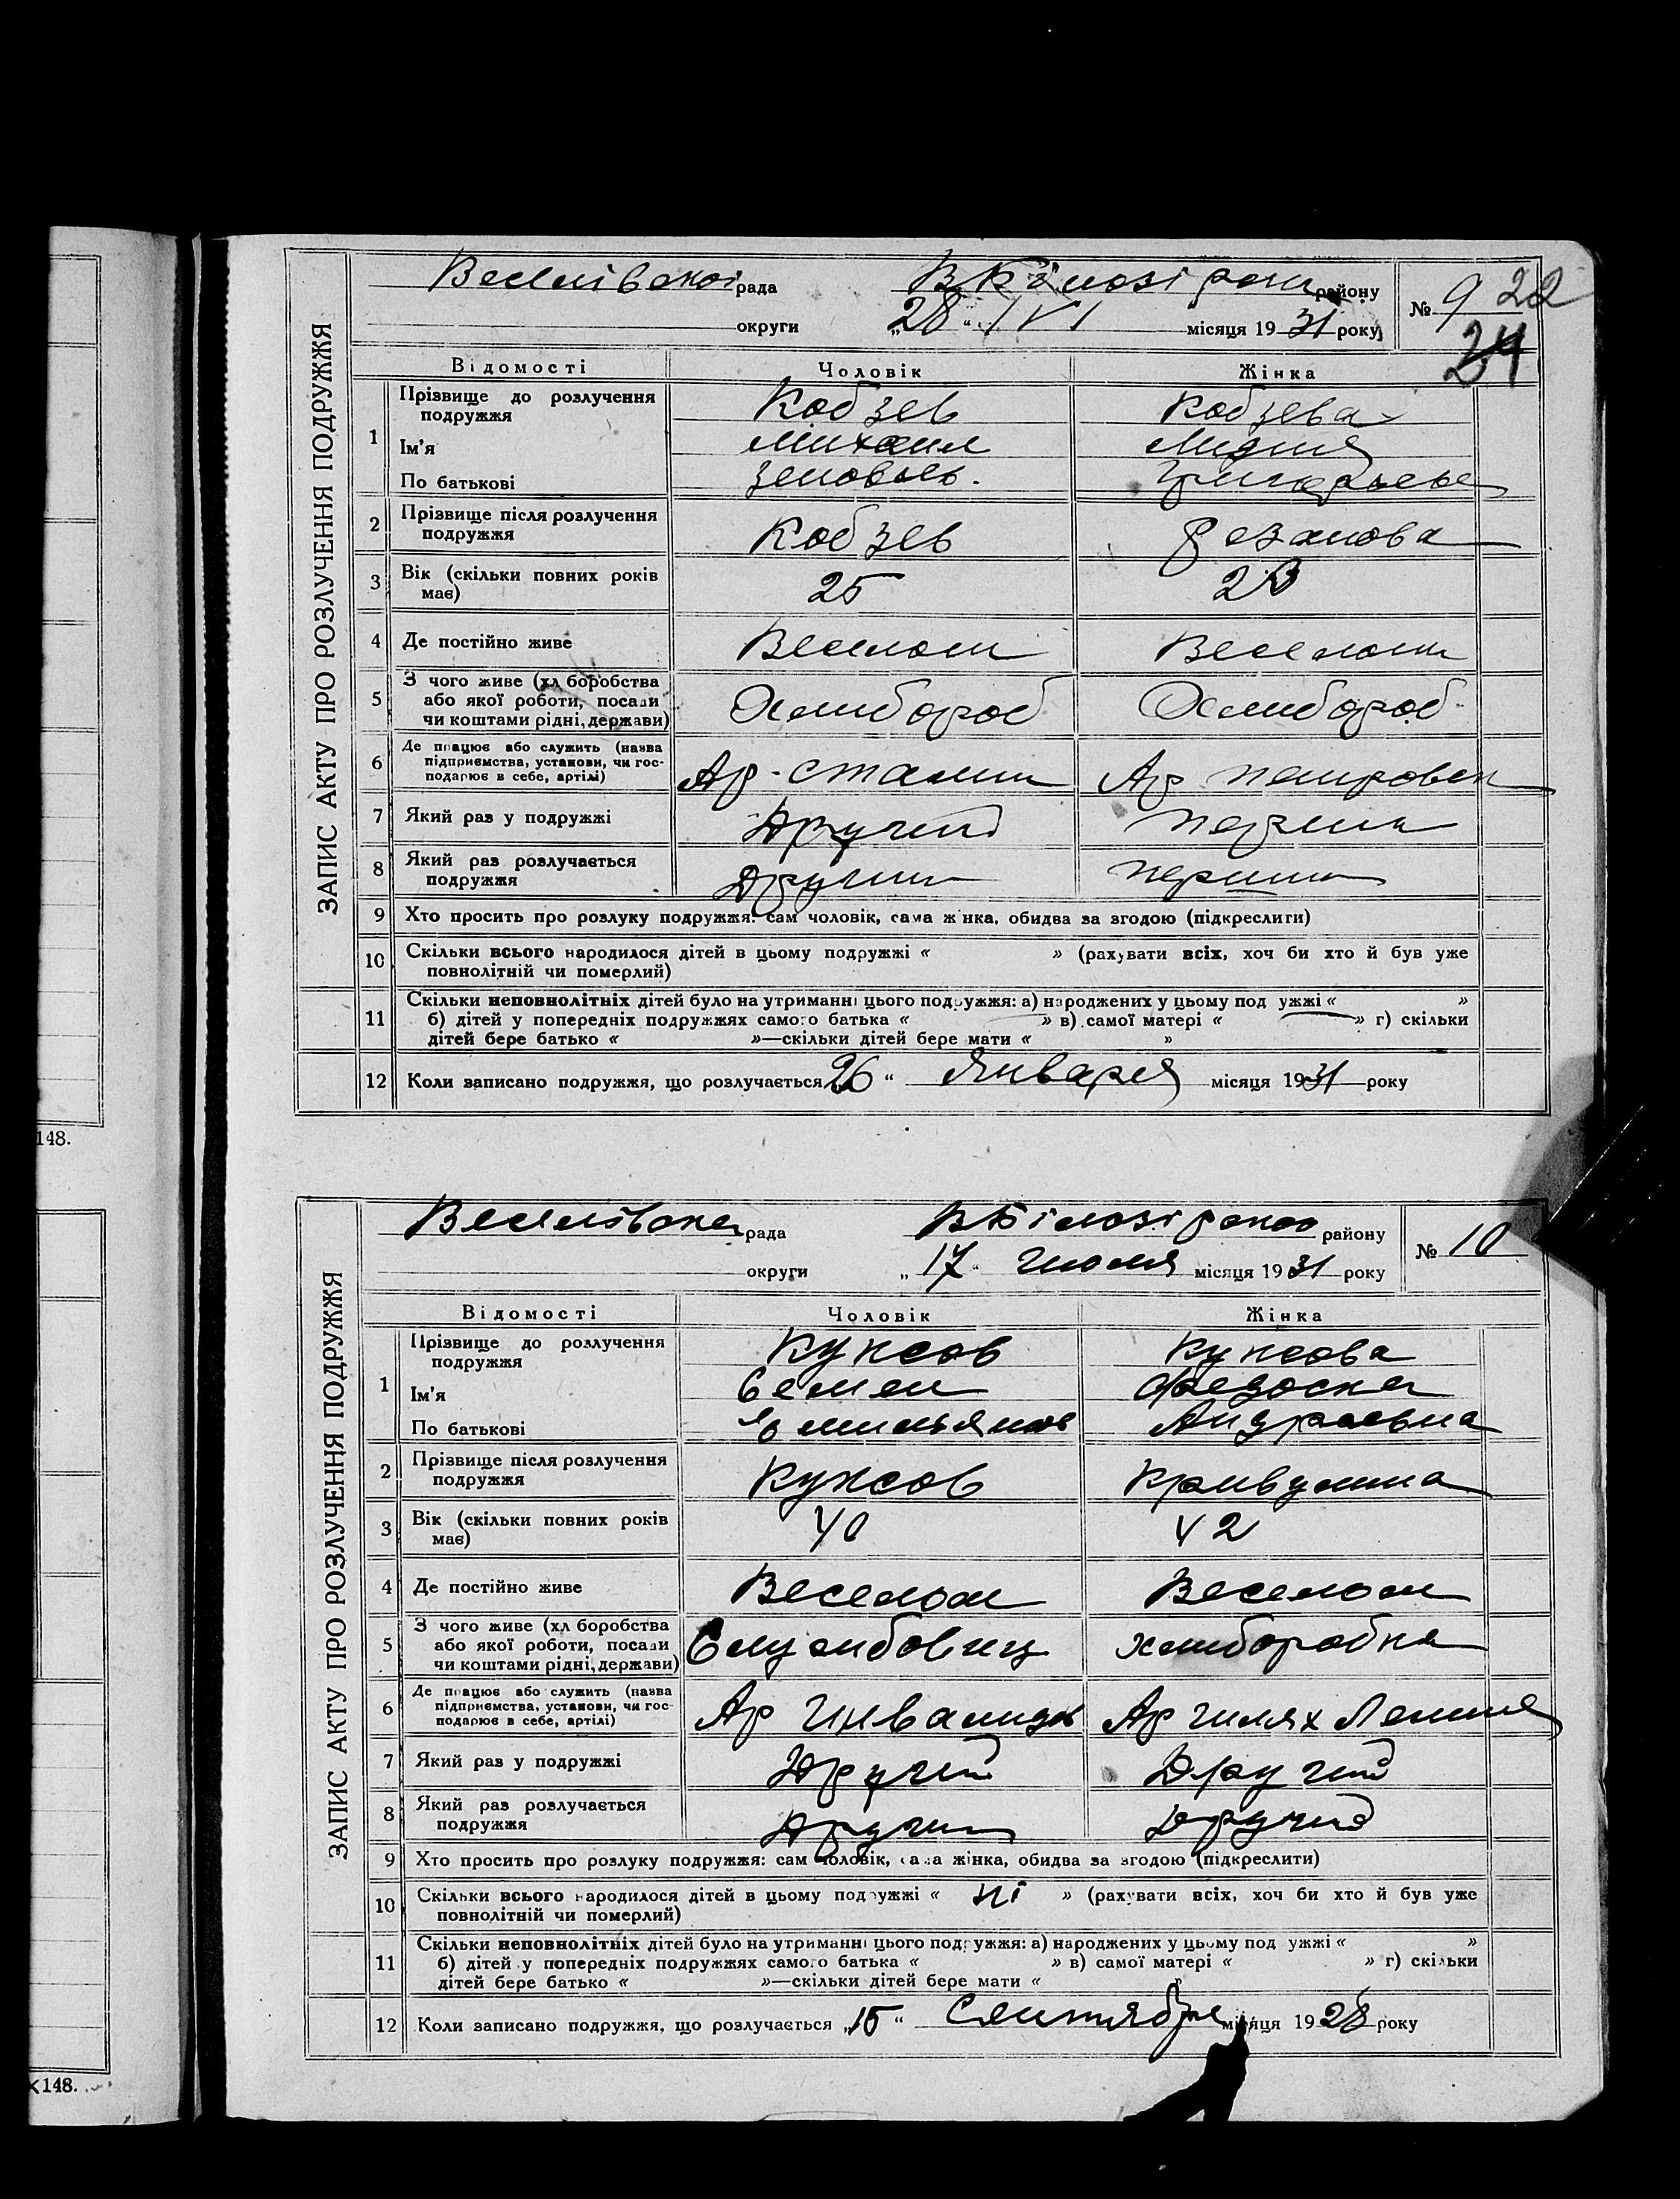 ЗАПИС АКТУ ПРО РОЗЛУЧЕННЯ ПОДРУЖЖЯ
рада района району № 9 22
24
округи „28“ VI місяця 1931 року
Відомості Чоловік Жінка
1 Прізвище до розлучення подружжя Кобзев Кобзева
Ім’я Михаил Лидия
По батькові Зеновьев. Григорьев
2 Прізвище після розлучення подружжя Кобзев Резанова
3 Вік (скільки повних років має) 25 23
4 Де постійно живе
5 З чого живе (хліборобства або якої роботи, посади чи коштами рідні, держави) Хлибороб Хлибороб
6 Де працює або служить (назва підприємства, установи, чи господарює в себе, артілі) Ар
7 Який раз у подружжі Другий
8 Який раз розлучається подружжя
9 Хто просить про розлуку подружжя: сам чоловік, сама жінка, обидва за згодою (підкреслити)
10 Скільки всього народилося дітей в цьому подружжі « » (рахувати всіх, хоч би хто й був уже
повнолітній чи померлий)
11 Скільки неповнолітніх дітей було на утриманні цього подружжя: а) народжених у цьому подружжі « »
б) дітей у попередніх подружжях самого батька « » в) самої матері « » г) скільки
дітей бере батько « »—скільки дітей бере мати « »
12 Коли записано подружжя, що розлучається „26“ Января місяця 1931 року
148.
ЗАПИС АКТУ ПРО РОЗЛУЧЕННЯ ПОДРУЖЖЯ
рада району № 10
округи „17“ Июля місяця 1931 року
Відомості Чоловік Жінка
1 Прізвище до розлучення подружжя Куксов Куксова
Ім’я Семен Федоска
По батькові Емильянов Андреевна
2 Прізвище після розлучення подружжя Куксов Кривулина
3 Вік (скільки повних років має) 40 42
4 Де постійно живе
5 З чого живе (хліборобства або якої роботи, посади чи коштами рідні, держави) Службовиц хлиборобка
6 Де працює або служить (назва підприємства, установи, чи господарює в себе, артілі) Ар Инвалидов Ар шлях Ленина
7 Який раз у подружжі Другий Другий
8 Який раз розлучається подружжя Другий
9 Хто просить про розлуку подружжя: сам чоловік, сама жінка, обидва за згодою (підкреслити)
10 Скільки всього народилося дітей в цьому подружжі « ні » (рахувати всіх, хоч би хто й був уже
повнолітній чи померлий)
11 Скільки неповнолітніх дітей було на утриманні цього подружжя: а) народжених у цьому подружжі « »
б) дітей у попередніх подружжях самого батька « » в) самої матері « » г) скільки
дітей бере батько « »—скільки дітей бере мати « »
12 Коли записано подружжя, що розлучається „15“ Сентября місяця 1928 року
148.